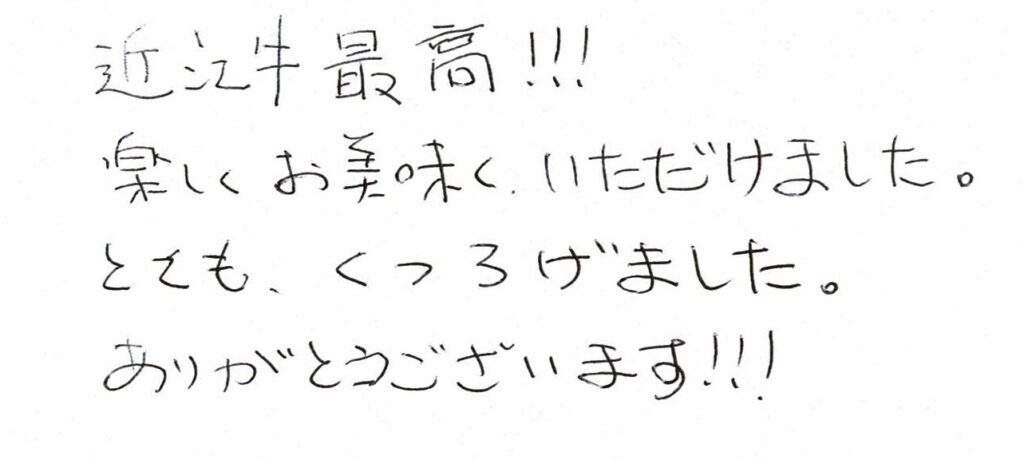 近江牛最高!!!
楽しくお美味く、いただけました。
とても、くつろげました。
ありがとうございます!!!